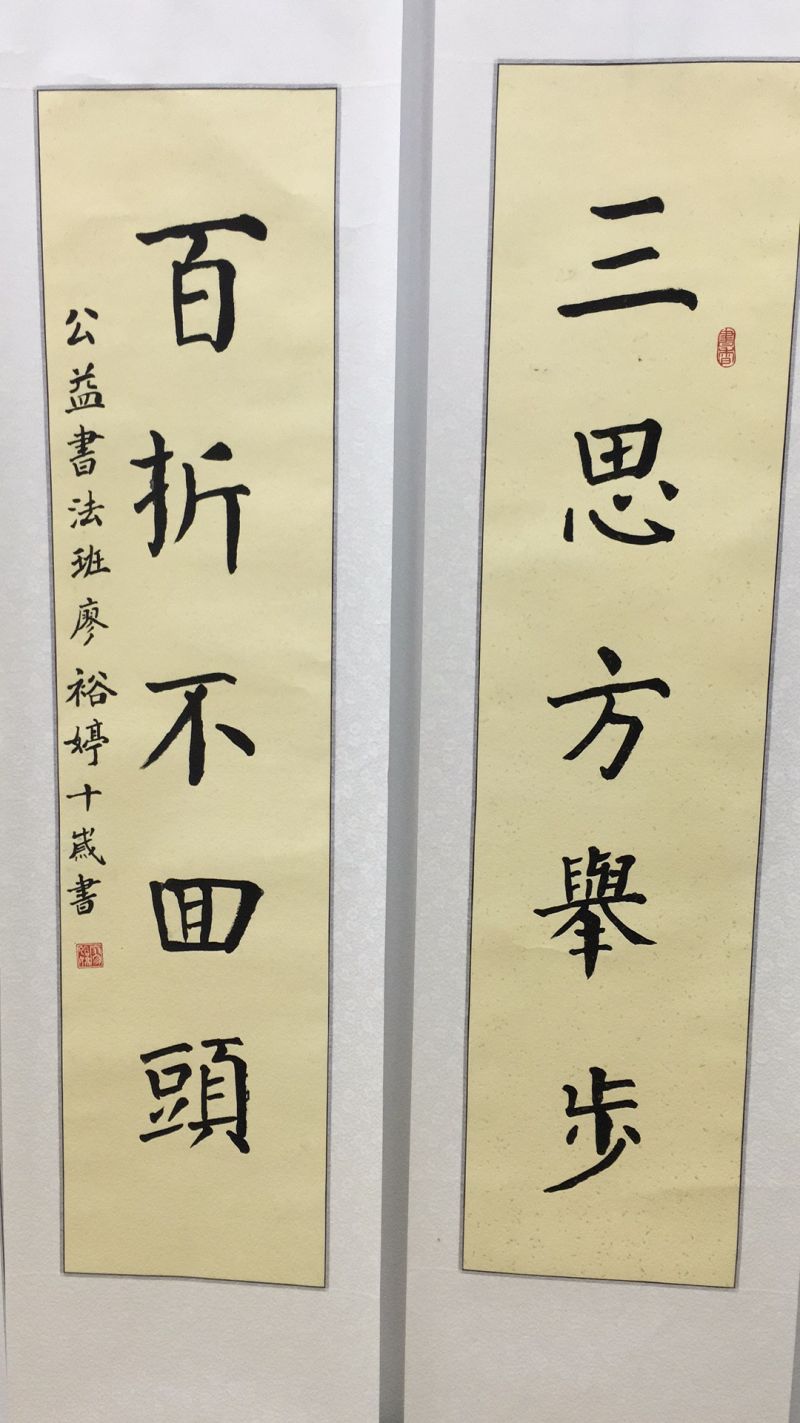 三思方舉步
百折不回頭
公益書法班廖裕婷十歲書